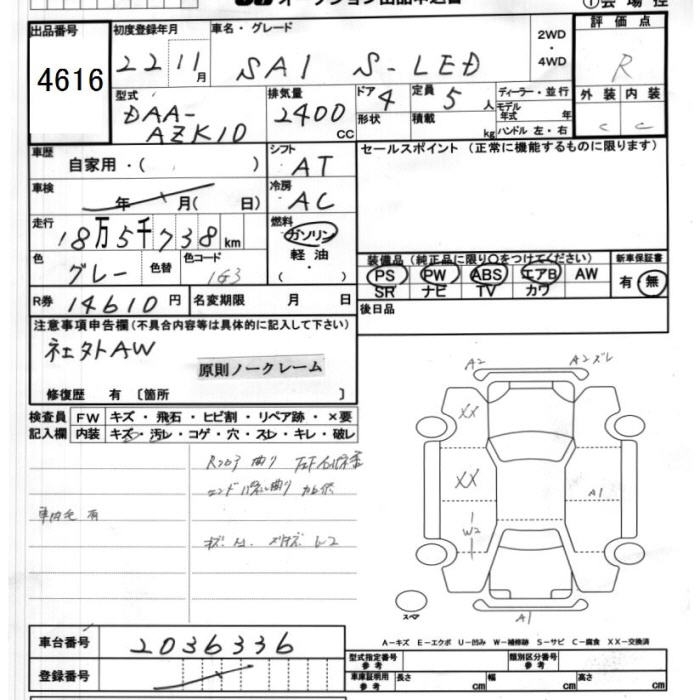 出品番号
4616
初度登録年月
22 11月
車名・グレード
SAI S-LED
2WD
・
4WD
評価点
R
外装 内装
C C
型式
DAA-
AZK10
排気量
2400
CC
ドア 4
形状
定員 5 人
積載 kg
ディーラー・並行
モデル年式 年
ハンドル 左・右
車歴
自家用・( )
シフト
AT
セールスポイント (正常に機能するものに限ります)
車検
年 月( 日)
冷房
AC
走行
18万5千738km
燃料
ガソリン
軽油
( ・ )
色
グレー
色替
色コード
1G3
装備品 (純正品に限り○をつけてください)
PS PW ABS エアB AW
SR ナビ TV カワ
新車保証書
有・無
R券 14610円
名変期限 月 日
後日品
注意事項申告欄(不具合内容等は具体的に記入して下さい)
社外AW
原則ノークレーム
修復歴 有 〔箇所 〕
検査員
記入欄
FW キズ・飛石・ヒビ割・リペア跡・×要
内装 キズ・汚レ・コゲ・穴・スレ・キレ・破レ
車内毛有
A2
A2ズレ
XX
XX
W2
A1
A1
スペア
A-キズ E-エクボ U-凹み W-補修跡 S-サビ C-腐食 XX-交換済
車台番号
2036336
登録番号
型式指定番号
参考
類別区分番号
参考
車庫証明用
参考
長さ cm 幅 cm 高さ cm